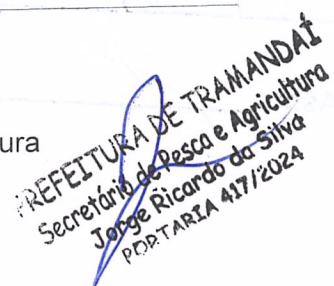 ura
PREFEITURA DE TRAMANDAÍ
Secretário de Pesca e Agricultura
Jorge Ricardo da Silva
PORTARIA 417/2024